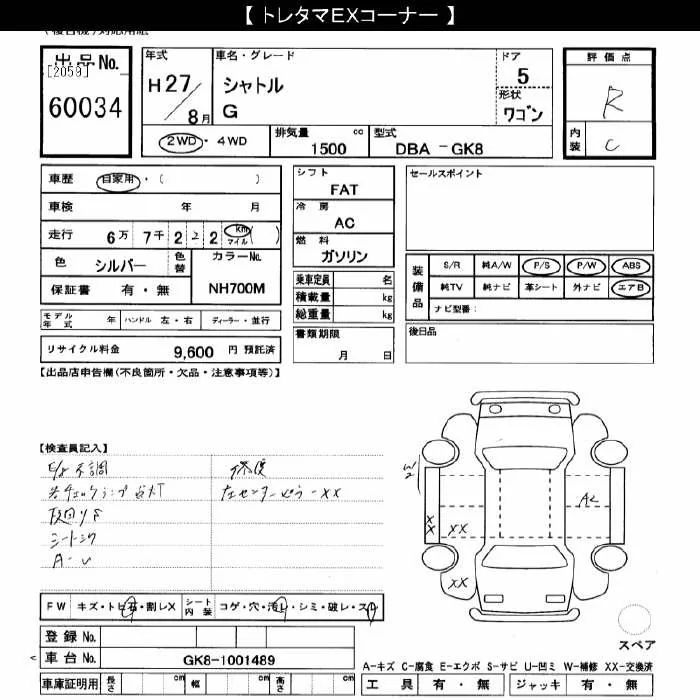 【 トレタマEXコーナー 】
出品No.
[2059]
60034
年式
H27/8月
車名・グレード
シャトル
G
ドア
5
形状
ワゴン
評価点
R
内装
C
2WD・4WD
排気量 cc
1500
型式
DBA -GK8
車歴 自家用・( )
車検 年 月
走行 6万 7千 2 2 2 km マイル ( )
色 シルバー 色替
カラーNo.
NH700M
保証書 有・無
モデル年式 年 ハンドル 左・右 ディーラー・並行
リサイクル料金 9,600 円 預託済
シフト
FAT
冷房
AC
燃料
ガソリン
乗車定員 名
積載量 kg
総重量 kg
書類期限
月 日
セールスポイント
装備品
S/R 純A/W P/S P/W ABS
純TV 純ナビ 革シート 外ナビ エアB
ナビ型番:
後日品
【出品店申告欄(不良箇所・欠品・注意事項等)】
【検査員記入】
E/g 不調
修復
チェックランプ点灯
左センターピラーXX
A-U
W2
XX
XX
XX
FW キズ・トビ石・割レX
シート内装 コゲ・穴・汚レ・シミ・破レ・スレ
登録No.
車台No. GK8-1001489
車庫証明用 長さ cm 幅 cm 高さ cm
スペア
A-キズ C-腐食 E-エクボ S-サビ U-凹ミ W-補修 XX-交換済
工具 有・無 ジャッキ 有・無